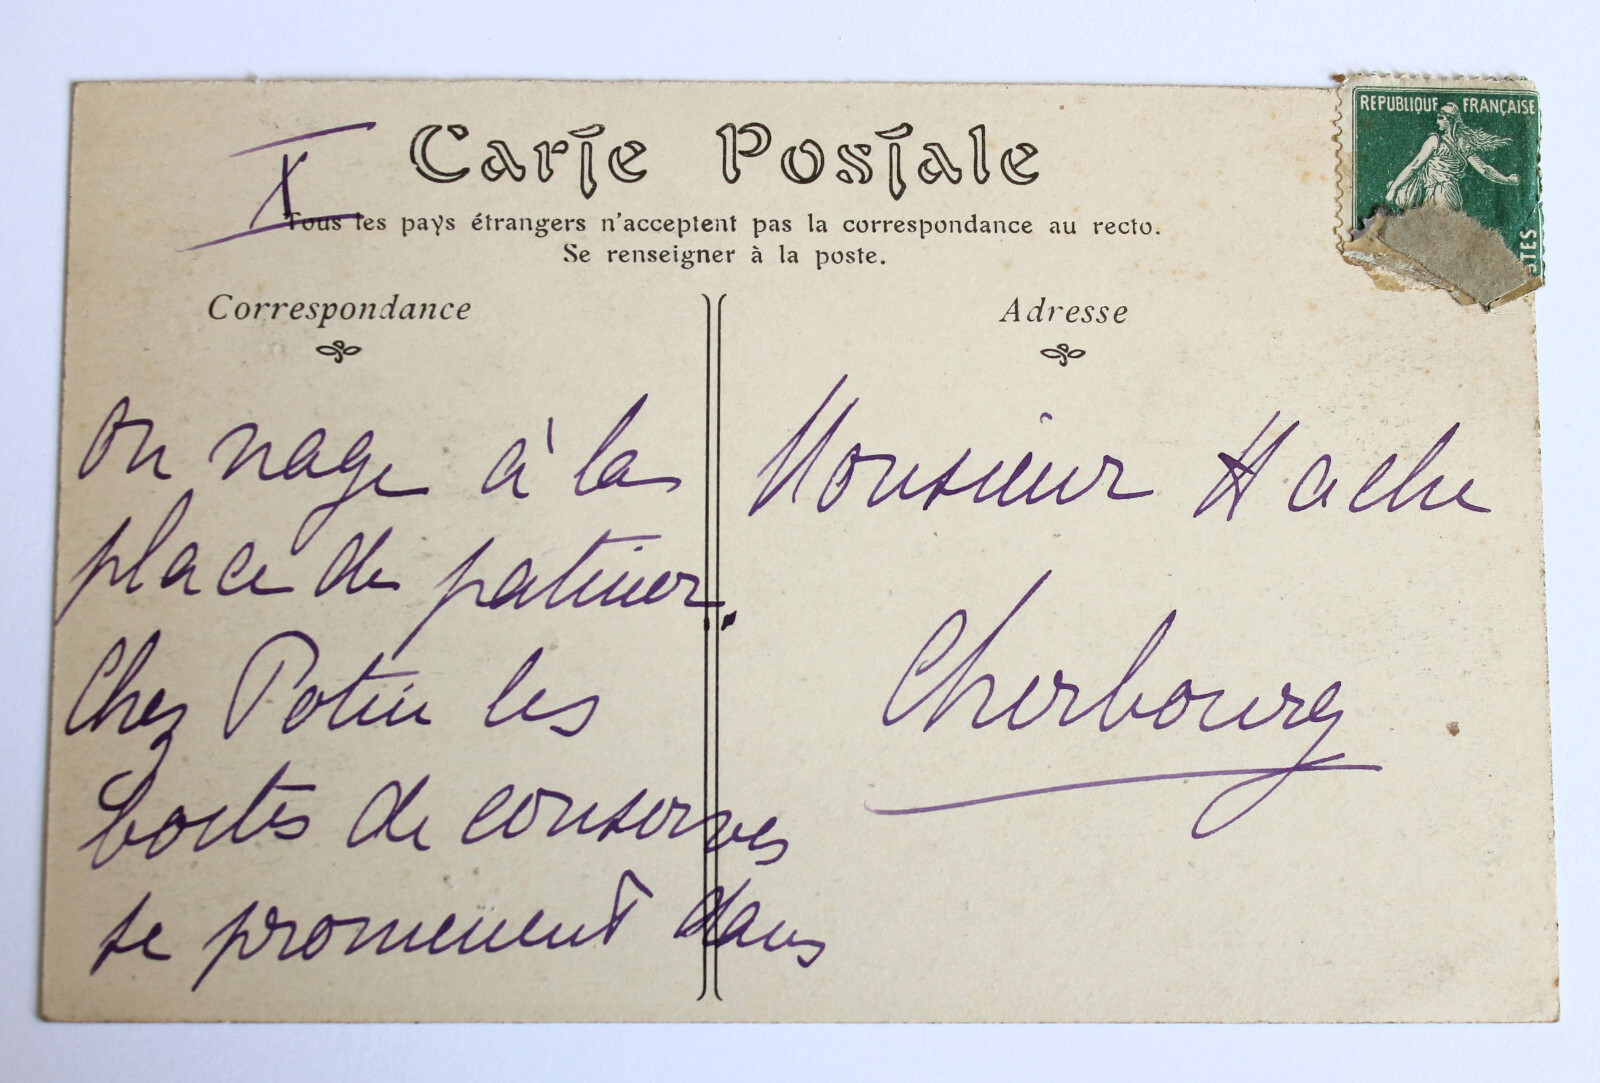 X
Carte Postale
Tous les pays étrangers n'acceptent pas la correspondance au recto.
Se renseigner à la poste.
REPUBLIQUE FRANÇAISE
STES
Correspondance
Adresse
On nage à la
place de patiner.
Chez Potin les
boites de conserves
se promenent dans
Monsieur Hache
Cherbourg